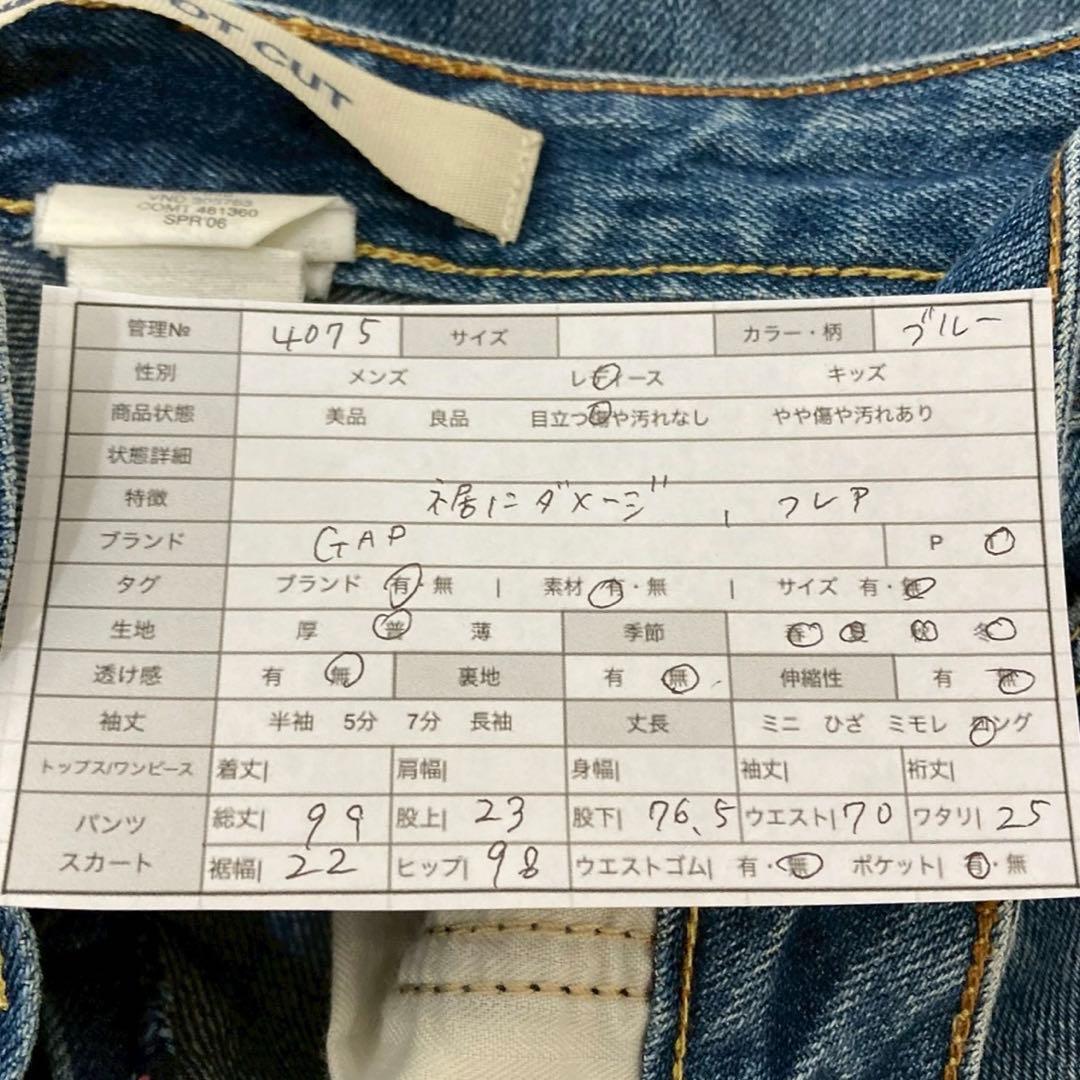 OT CUT
VND 305763
COMT 461360
SPR'06
管理№ 4075 サイズ カラー・柄 ブルー
性別 メンズ レディース キッズ
商品状態 美品 良品 目立つ傷や汚れなし やや傷や汚れあり
状態詳細
特徴 裾にダメージ , フレア
ブランド GAP P
タグ ブランド 有・無 | 素材 有・無 | サイズ 有・無
生地 厚 普 薄 季節 春 夏 秋 冬
透け感 有 無 裏地 有 無 伸縮性 有 無
袖丈 半袖 5分 7分 長袖 丈長 ミニ ひざ ミモレ ロング
トップス/ワンピース 着丈| 肩幅| 身幅| 袖丈| 裄丈|
パンツ 総丈| 99 股上| 23 股下| 76.5 ウエスト| 70 ワタリ| 25
スカート 裾幅| 22 ヒップ| 98 ウエストゴム| 有・無 ポケット| 有・無